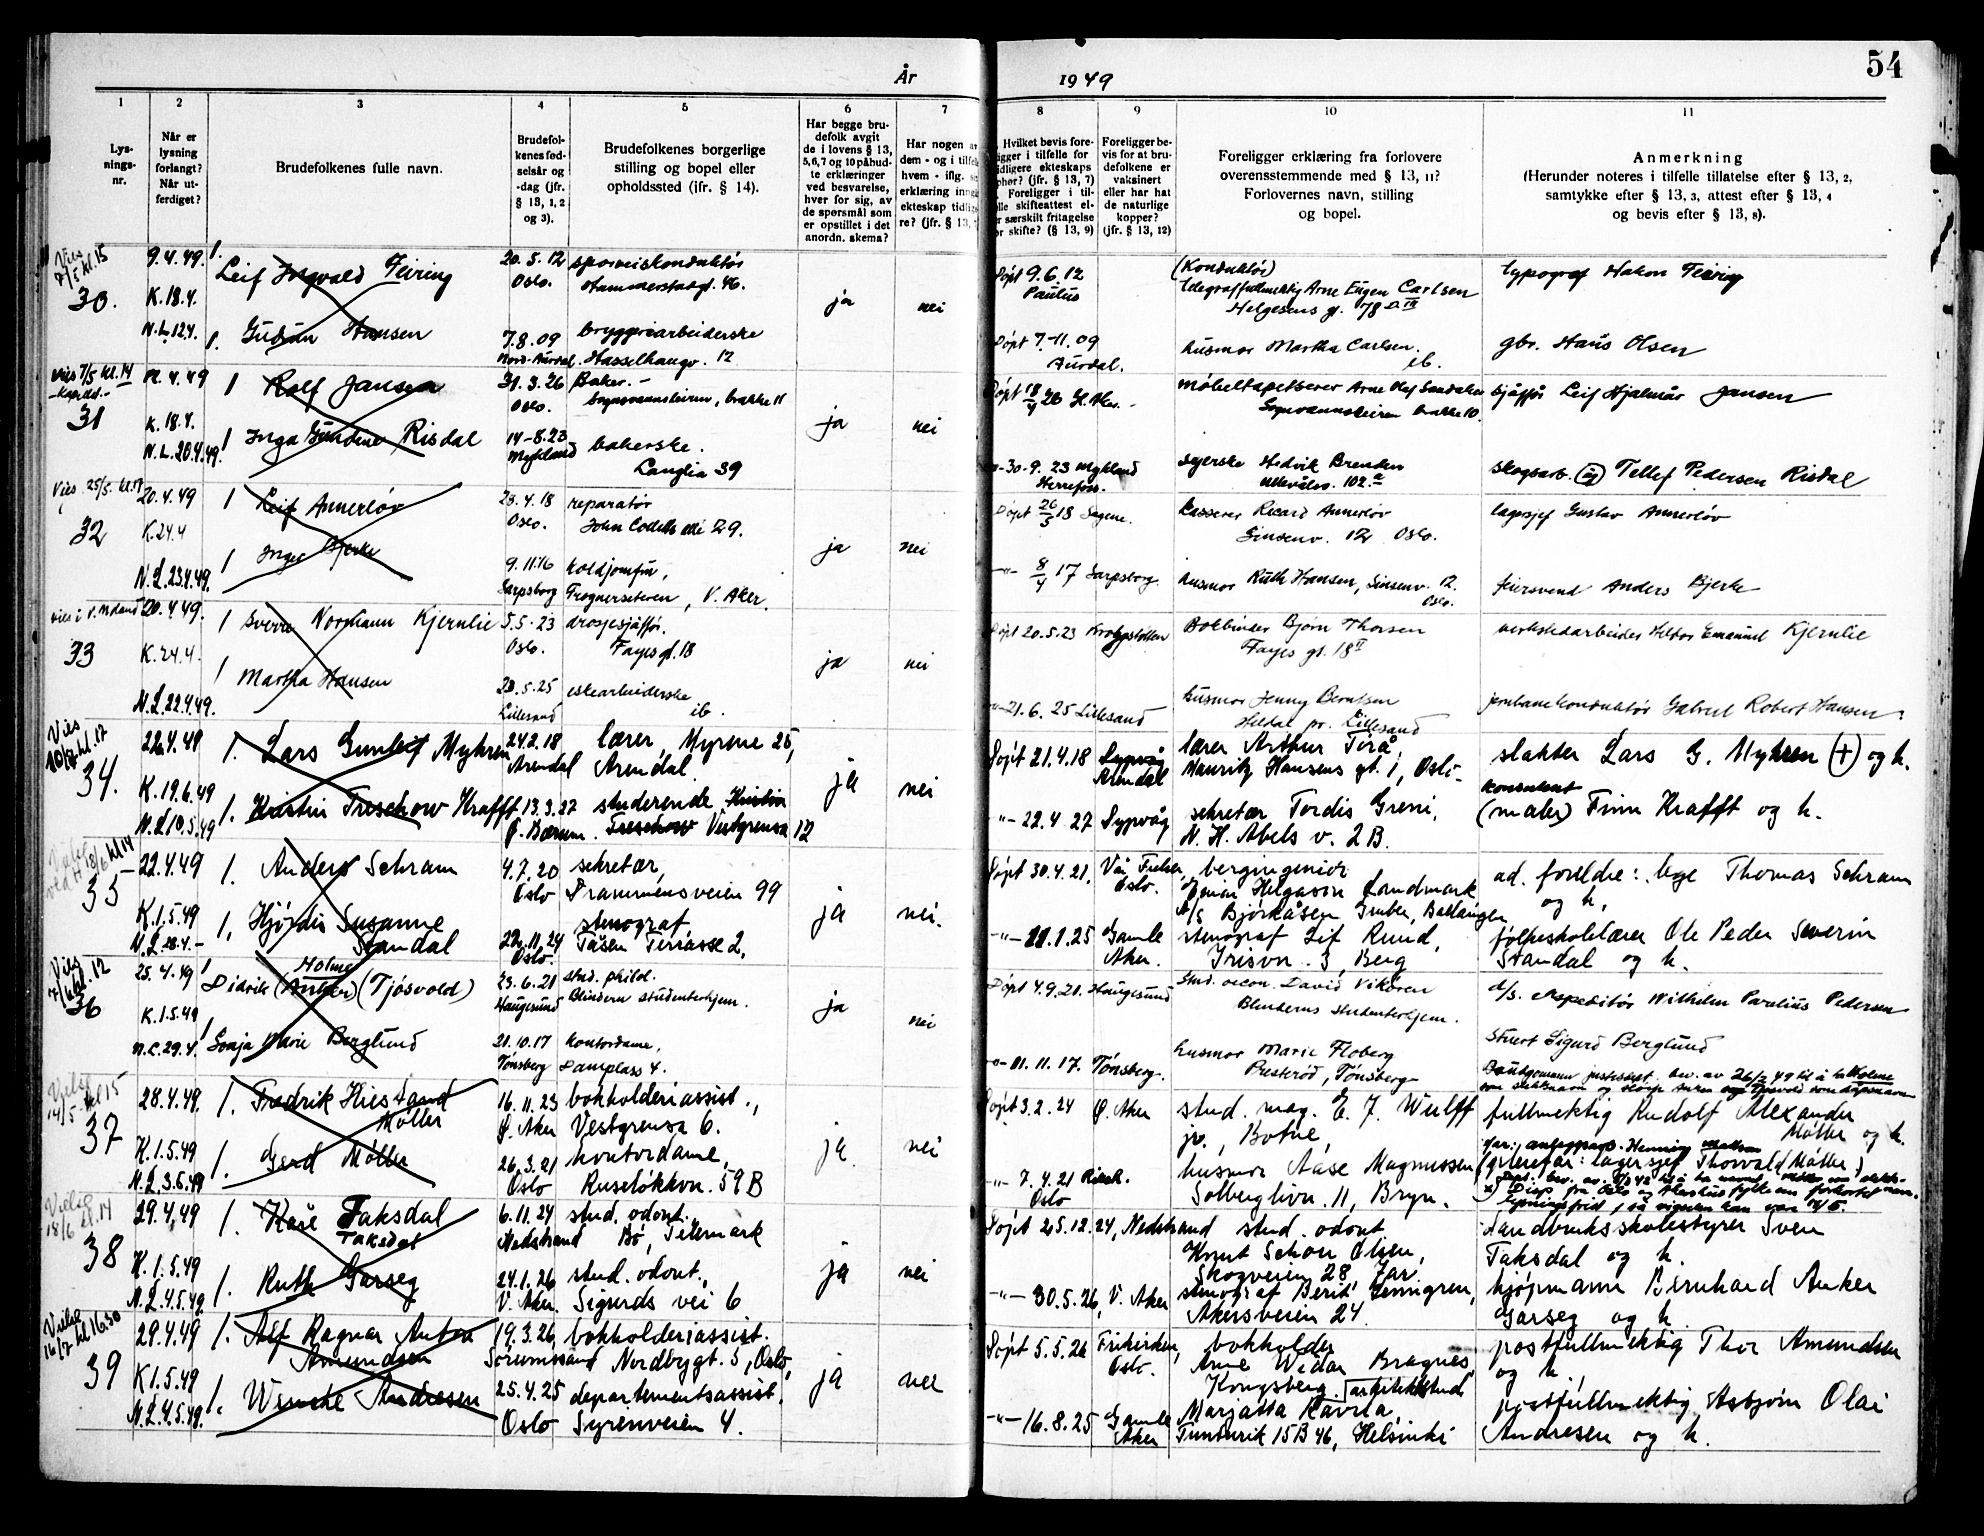 54
År
1949
1
2
3
4
5
6
7
8
9
10
11
Lys-
nings-
nr.
Når er
lysning
forlangt?
Når ut-
ferdiget?
Brudefolkenes fulle navn.
Brudefol-
kenes fød-
selsår og
-dag (jfr.
§ 13, 1, 2
og 3).
Brudefolkenes borgerlige
stilling og bopel eller
opholdssted (jfr. § 14).
Har begge bru-
defolk avgit
de i lovens § 13,
5, 6, 7 og 10 påbud-
te erklæringer
ved besvarelse,
hver for sig, av
de spørsmål som
er opstillet i det
anordn. skema?
Har nogen a
dem - og i tilfelle
hvem - iflg.
erklæring inng
ekteskap tidlig
re? (jfr. § 13,
Hvilket bevis fore-
ligger i tilfelle for
tidligere ekteskaps
ophør? (jfr. § 13, 7)
Foreligger i til-
felle skifteattest el-
ler særskilt fritagelse
for skifte? (§ 13, 9)
Foreligger be-
vis for at bru-
defolkene er
vaksinert
eller har hat
de naturlige
kopper?
(jfr. § 13, 12)
Foreligger erklæring fra forlovere
overensstemmende med § 13, 11?
Forlovernes navn, stilling
og bopel.
Anmerkning
(Herunder noteres i tilfelle tillatelse efter § 13, 2,
samtykke efter § 13, 3, attest efter § 13, 4
og bevis efter § 13, 8).
Vies
7/5 kl. 15
30.
9.4.49.
K. 18.4.
N.L. 12.4.
1. Leif Ingvald Feiring
20.5.12
Oslo.
sporveiskonduktør
Hammerstadgt. 46.
ja
nei
Døpt 9.6.12
Paulus
(Konduktør)
telegraffullmektig Arne Eugen Carlsen
Helgesens gt. 78
typograf Hakon Feiring
1. Gudrun Hansen
7.8.09
Nord-Aurdal
bryggeriarbeiderske
Hasselhaugv. 12
Døpt 7.-11.09
Aurdal.
husmor Martha Carlsen.
ib.
gbr. Hans Olsen
Vies 7/5 kl. 14
31
4.49
K. 18.4.
N.L. 20.4.49.
1 Rolf Jansen
31.3.26
Oslo.
Baker. -
Sognsvannsleiren, brakke 11
ja
nei
Døpt 18/4 26
møbeltapetserer Arne Olaf Sandaker
Sognvannsleiren brakke 10.
sjåfør Leif Hjalmar Jansen
1 Inga Gundine Risdal
14-8.23
Mykland
bakerske.
Langlia 39
-30-9.23 Mykland
Herrefoss.
syerske Hedvik Brenden
Ullevålsv. 102.a
skogsarb. Tellef Pedersen Risdal
Vies 25/5. kl. 17
32
20.4.49
K. 24.4
N.L. 23.4.49.
1 Leif Annerløv
23.4.18
Oslo.
reparatør
John Colletts alle 29.
ja
nei
Døpt 26/5 18 Sagene.
kasserer Ricard Annerløv
Sinsenv. 12 Oslo.
lagersjef Gustav Annerløv
1 Inger Bjerke
9.11.16
Sarpsborg
koldjomfru,
Frognerseteren, V. Aker.
-"- 8/4 17 Sarpsborg.
husmor Ruth Hansen, Sinsenv. 12.
Oslo.
feiersvend Anders Bjerke
33
20.4.49.
K. 24.4.
N.L. 22.4.49.
1 Sverre Normann Kjernlie
5.5.23
Oslo.
drosjesjåfør.
Fayes gt. 18
ja
nei
Døpt 20.5.23 Krohgstøtten
Bokbinder Bjørn Thorsen
Fayes gt. 18 II
verkstedarbeider Helbor Emanuel Kjernlie
1 Martha Hansen
20.5.25
Lillesand
eskearbeiderske
ib.
-"-21.6.25 Lillesand
husmor Jenny Berntsen
Heldal pr. Lillesand
jernbanekonduktør Gabriel Robert Hansen
Vies
10/7 kl. 17
34.
22.4.49
K. 19.6.49
N.L. 10.5.49
1. Lars Gunleif Myhren
24.2.18
Arendal
lærer, Myrene 25,
Arendal.
ja
nei
Døpt 21.4.18
Arendal
lærer Arthur Tirå,
Mauritz Hansens gt. 1, Oslo-
slakter Lars G. Myhren (+) og h.
1. Kristin Treschow Krafft
13.3.27
Ø. Bærum.
studerende Kristin
Treschow Vestgrensa 12
-"- 22.4 27 Dypvåg
sekretær Tordis Greni,
N. H. Abels v. 2B.
konsulent
(maler) Finn Krafft og h.
18/6 kl 14
35
22.4.49
K. 1.5.49
N.L. 28.4.-
1. Anders Schram
4.7.20
Oslo
sekretær,
Drammensveien 99
ja
nei.
Døpt 30.4.21.
Vår Frelser,
Oslo.
bergingeniør
Einar Helgason Landmark
A/S Bjørkåsen Gruber, Ballangen
ad. foreldre: lege Thomas Schram
og h,
1. Hjördis Susanne
Standal
22.11.24
Oslo.
stenograf
Tåsen Terrasse 2,
-"- 11.1.25
Gamle
Aker.
stenograf Lif Rund,
Irisvn. 3, Berg
folkeskolelærer Ole Peder Severin
Standal og h.
Vies
7/6 kl. 12
36
25.4.49
K. 1.5.49
N.L. 29.4.
Holme
1 Didrik (Anker) (Tjøsvold)
23.6.21
Haugesund
stud. philol.
Blindern studenterhjem.
ja
nei
Døpt 4.9.21. Haugesund
Stud. oecon. David Vikøren
Blinderns Studenterhjem.
d/s. ekspeditør Wilhelm Paulius Pedersen
1 Sonja Marie Berglund
21.10.17
Tønsberg
kontordame,
Damplass 4.
-"- 11.11.17. Tønsberg.
husmor Marie Floberg
Presterød, Tønsberg
Stuert Sigurd Berglund
Brudgommen justisdept. bev. av 26/2 49 til å ta Holme
som slektsnavn og sløife Anker og Tjøsvold som døpenavn
Vielse
14/5 - kl 15
37
28.4.49.
K. 1.5.49
N.L. 3.6.49
1. Fredrik Hiestand
Møller
16.11.23
Ø. Aker
bokholderiassist.,
Vestgrensa 6.
ja
nei
Døpt 3.2.24
Ø. Aker
stud. mag. E. J. Wulff
jr., Botne,
fullmektig Rudolf Alexander
Møller og h.
1. Gerd Møller
26.3.21
Oslo
kontordame,
Ruseløkkvn. 59B
-"- 7.4.21
Oslo
husmor Aase Magnussen
Solberglivn. 11, Bryn.
far: anleggsarb. Henning Madsen
(pleiefar: lagersjef Thorvald Møller)
Vielse
18/6 kl. 14
38
29.4.49
K. 1.5.49
N.L. 4.5.49.
1. Kåre Faksdal
Taksdal
6.11.24
Nedstrand
stud. odont.
Bø, Telemark
ja
nei
Døpt 25.12.24, Nedstrand
stud. odont
Knut Schou Olsen,
Skogveien 28, Jar.
Landbruksskolestyrer Sven
Taksdal og h.
1. Ruth Garseg
24.1.26
V. Aker.
stud. odont.,
Sigurds vei 6
-"- 30.5.26, V. Aker
stenograf Berit Lenngren,
Akersveien 24.
kjøpmann Bernhard Anker
Garseg og h.
Vielse
16/7 kl 16.30
39
29.4.49
K 1.5.49
N.L. 4.5.49.
1. Alf Ragnar Anton
Amundsen
19.3.26,
Sørumsand
bokholderiassist.
Nordbygt. 5, Oslo,
ja
nei
Døpt 5.5.26
Frikirken,
Oslo.
bokholder
Arne Widar Bragnes,
Kongsberg.
postfullmektig Thor Amundsen
og h.
1. Wenche Andresen
25.4.25
Oslo
departementsassist.
Syrenveien 4.
-"- 16.8.25
Gamle
Aker
arkitektstud
Marjatta Ravila,
Tunturik 15B 46, Helsinki
postfullmektig Asbjørn Olai
Andresen og h.